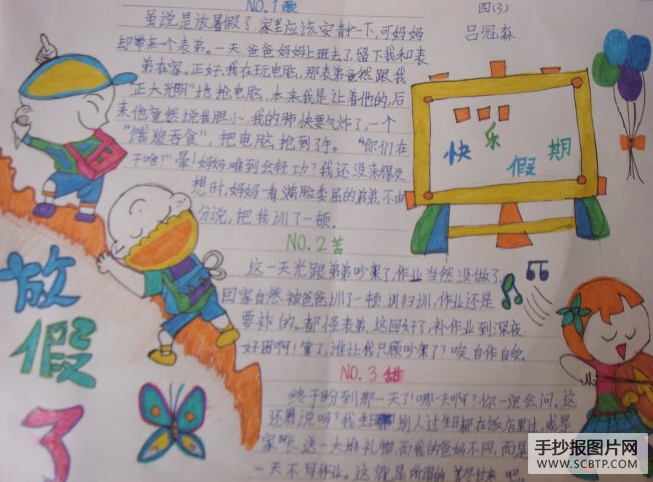 NO.1
四(3)
吕冠森
虽说是放暑假了,家里应该安静一下,可妈妈
却带来一个表弟。一天爸爸妈妈上班去了,留下我和表
弟在家。正好,我在玩电脑,那表弟竟然跟我
"正大光明"地抢电脑,本来我是让着他的,后
来他竟然说我胆小,我的肺快要气炸了,一个
"饿狼吞食",把电脑抢到了手。"你们在
干啥?"晕!妈妈难到会轻功?我还没来得及
想时,妈妈一看满脸委屈的弟弟,不由
分说,把我训了一顿。
快乐假期
NO.2 苦
这一天光跟弟弟吵架了,作业当然没做了,
回家自然被爸爸训了一顿,训归训,作业还是
要补的。都怪表弟,这回好了,补作业到深夜
好困啊!算了,谁让我只顾吵架了?唉,自作自受
NO.3 甜
终于盼到那一天了!哪一天啊?你一定会问,这
还用说吗?我生日 别人过生日都在饭店里过,或是
家长送一大堆礼物,而我的爸妈不同,而是
一天不写作业。这就是所谓的苦尽甘来吧。
放假了
手抄报图片网
WWW.SCBTP.COM